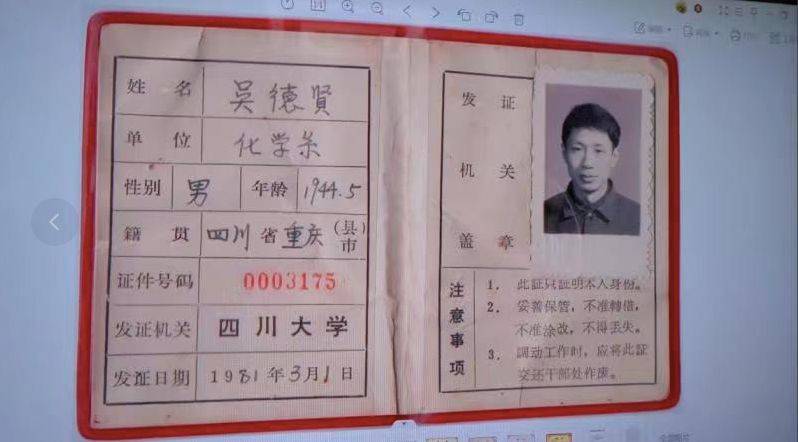 姓名 吴德贤
单位 化学系
性别 男 年龄 1944.5
籍贯 四川省重庆(县)市
证件号码 0003175
发证机关 四川大学
发证日期 1981年3月1日
发证
机关
盖章
注意事项
1. 此証只証明本人身份。
2. 妥善保管，不准轉借，
不准涂改，不得丢失。
3. 調动工作时，应将此証
交还干部处作废。